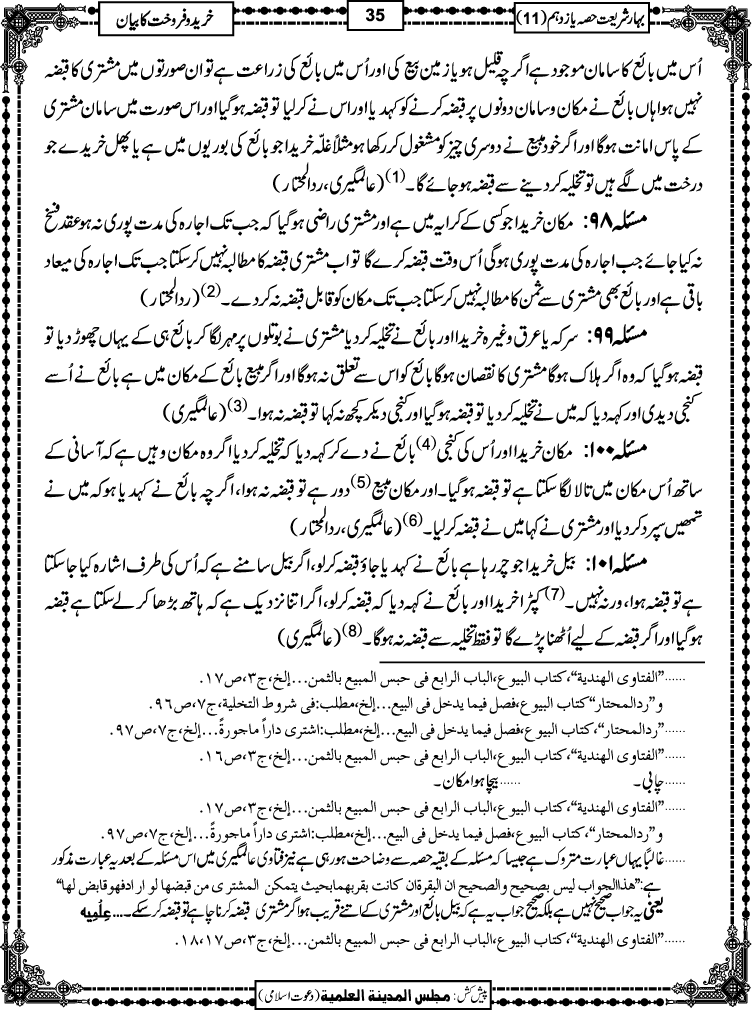 بہارِ شریعت حصہ یازدہم (11)
35
خرید و فروخت کا بیان
اُس میں بائع کا سامان موجود ہے اگرچہ قلیل ہو یا زمین بیع کی اور اُس میں بائع کی زراعت ہے تو ان صورتوں میں مشتری کا قبضہ
نہیں ہوا ہاں بائع نے مکان و سامان دونوں پر قبضہ کرنے کو کہہ دیا اور اس نے کر لیا تو قبضہ ہو گیا اور اس صورت میں سامان مشتری
کے پاس امانت ہوگا اور اگر خود مبیع نے دوسری چیز کو مشغول کر رکھا ہو مثلاً غلّہ خریدا جو بائع کی بوریوں میں ہے یا پھل خریدے جو
درخت میں لگے ہیں تو تخلیہ کر دینے سے قبضہ ہو جائے گا۔(1) (عالمگیری، ردالمحتار)
مسئلہ ۹۸: مکان خریدا جو کسی کے کرایہ میں ہے اور مشتری راضی ہو گیا کہ جب تک اجارہ کی مدت پوری نہ ہو عقد فسخ
نہ کیا جائے جب اجارہ کی مدت پوری ہوگی اُس وقت قبضہ کرے گا تو اب مشتری قبضہ کا مطالبہ نہیں کر سکتا جب تک اجارہ کی میعاد
باقی ہے اور بائع بھی مشتری سے ثمن کا مطالبہ نہیں کر سکتا جب تک مکان کو قابل قبضہ نہ کر دے۔(2) (ردالمحتار)
مسئلہ ۹۹: سرکہ یا عرق وغیرہ خریدا اور بائع نے تخلیہ کر دیا مشتری نے بوتلوں پر مہر لگا کر بائع ہی کے یہاں چھوڑ دیا تو
قبضہ ہو گیا کہ وہ اگر ہلاک ہوگا مشتری کا نقصان ہوگا بائع کو اس سے تعلق نہ ہوگا اور اگر مبیع بائع کے مکان میں ہے بائع نے اُسے
کنجی دیدی اور کہہ دیا کہ میں نے تخلیہ کر دیا تو قبضہ ہو گیا اور کنجی دیکر کچھ نہ کہا تو قبضہ نہ ہوا۔(3) (عالمگیری)
مسئلہ ۱۰۰: مکان خریدا اور اُس کی کنجی(4) بائع نے دے کر کہہ دیا کہ تخلیہ کر دیا اگر وہ مکان وہیں ہے کہ آسانی کے
ساتھ اُس مکان میں تالا لگا سکتا ہے تو قبضہ ہو گیا۔ اور مکان مبیع(5) دور ہے تو قبضہ نہ ہوا، اگرچہ بائع نے کہہ دیا ہو کہ میں نے
تمھیں سپرد کر دیا اور مشتری نے کہا میں نے قبضہ کر لیا۔(6) (عالمگیری، ردالمحتار)
مسئلہ ۱۰۱: بیل خریدا جو چر رہا ہے بائع نے کہہ دیا جاؤ قبضہ کر لو، اگر بیل سامنے ہے کہ اُس کی طرف اشارہ کیا جا سکتا
ہے تو قبضہ ہوا، ورنہ نہیں۔(7) کپڑا خریدا اور بائع نے کہہ دیا کہ قبضہ کر لو، اگر اتنا نزدیک ہے کہ ہاتھ بڑھا کر لے سکتا ہے قبضہ
ہو گیا اور اگر قبضہ کے لیے اُٹھنا پڑے گا تو فقط تخلیہ سے قبضہ نہ ہوگا۔(8) (عالمگیری)
......"الفتاوی الهندیة"، کتاب البیوع، الباب الرابع فی حبس المبیع بالثمن...إلخ، ج۳، ص۱۷.
و"ردالمحتار" کتاب البیوع، فصل فیما یدخل فی البیع...إلخ، مطلب: فی شروط التخلیة، ج۷، ص۹۶.
......"ردالمحتار"، کتاب البیوع، فصل فیما یدخل فی البیع...إلخ، مطلب: اشتری داراً ماجورةً...إلخ، ج۷، ص۹۷.
......"الفتاوی الهندیة"، کتاب البیوع، الباب الرابع فی حبس المبیع بالثمن...إلخ، ج۳، ص۱۶.
......چابی۔ ......بیچا ہوا مکان۔
......"الفتاوی الهندیة"، کتاب البیوع، الباب الرابع فی حبس المبیع بالثمن...إلخ، ج۳، ص۱۷.
و"ردالمحتار"، کتاب البیوع، فصل فیما یدخل فی البیع...إلخ، مطلب: اشتری داراً ماجورةً...إلخ، ج۷، ص۹۷.
......غالبًا یہاں عبارت متروک ہے جیسا کہ مسئلہ کے بقیہ حصہ سے وضاحت ہو رہی ہے نیز فتاوی عالمگیری میں اس مسئلہ کے بعد یہ عبارت مذکور
ہے: "هذا الجواب لیس بصحیح والصحیح ان البقرة ان کانت بقربهما بحیث یتمکن المشتری من قبضها لو اراد فهو قابض لها"
یعنی یہ جواب صحیح نہیں ہے بلکہ صحیح جواب یہ ہے کہ بیل بائع اور مشتری کے اتنے قریب ہو اگر مشتری قبضہ کرنا چاہے تو قبضہ کر سکے۔... عِلْمِیه
......"الفتاوی الهندیة"، کتاب البیوع، الباب الرابع فی حبس المبیع بالثمن...إلخ، ج۳، ص۱۷، ۱۸.
پیش کش: مجلس المدینة العلمیة (دعوت اسلامی)